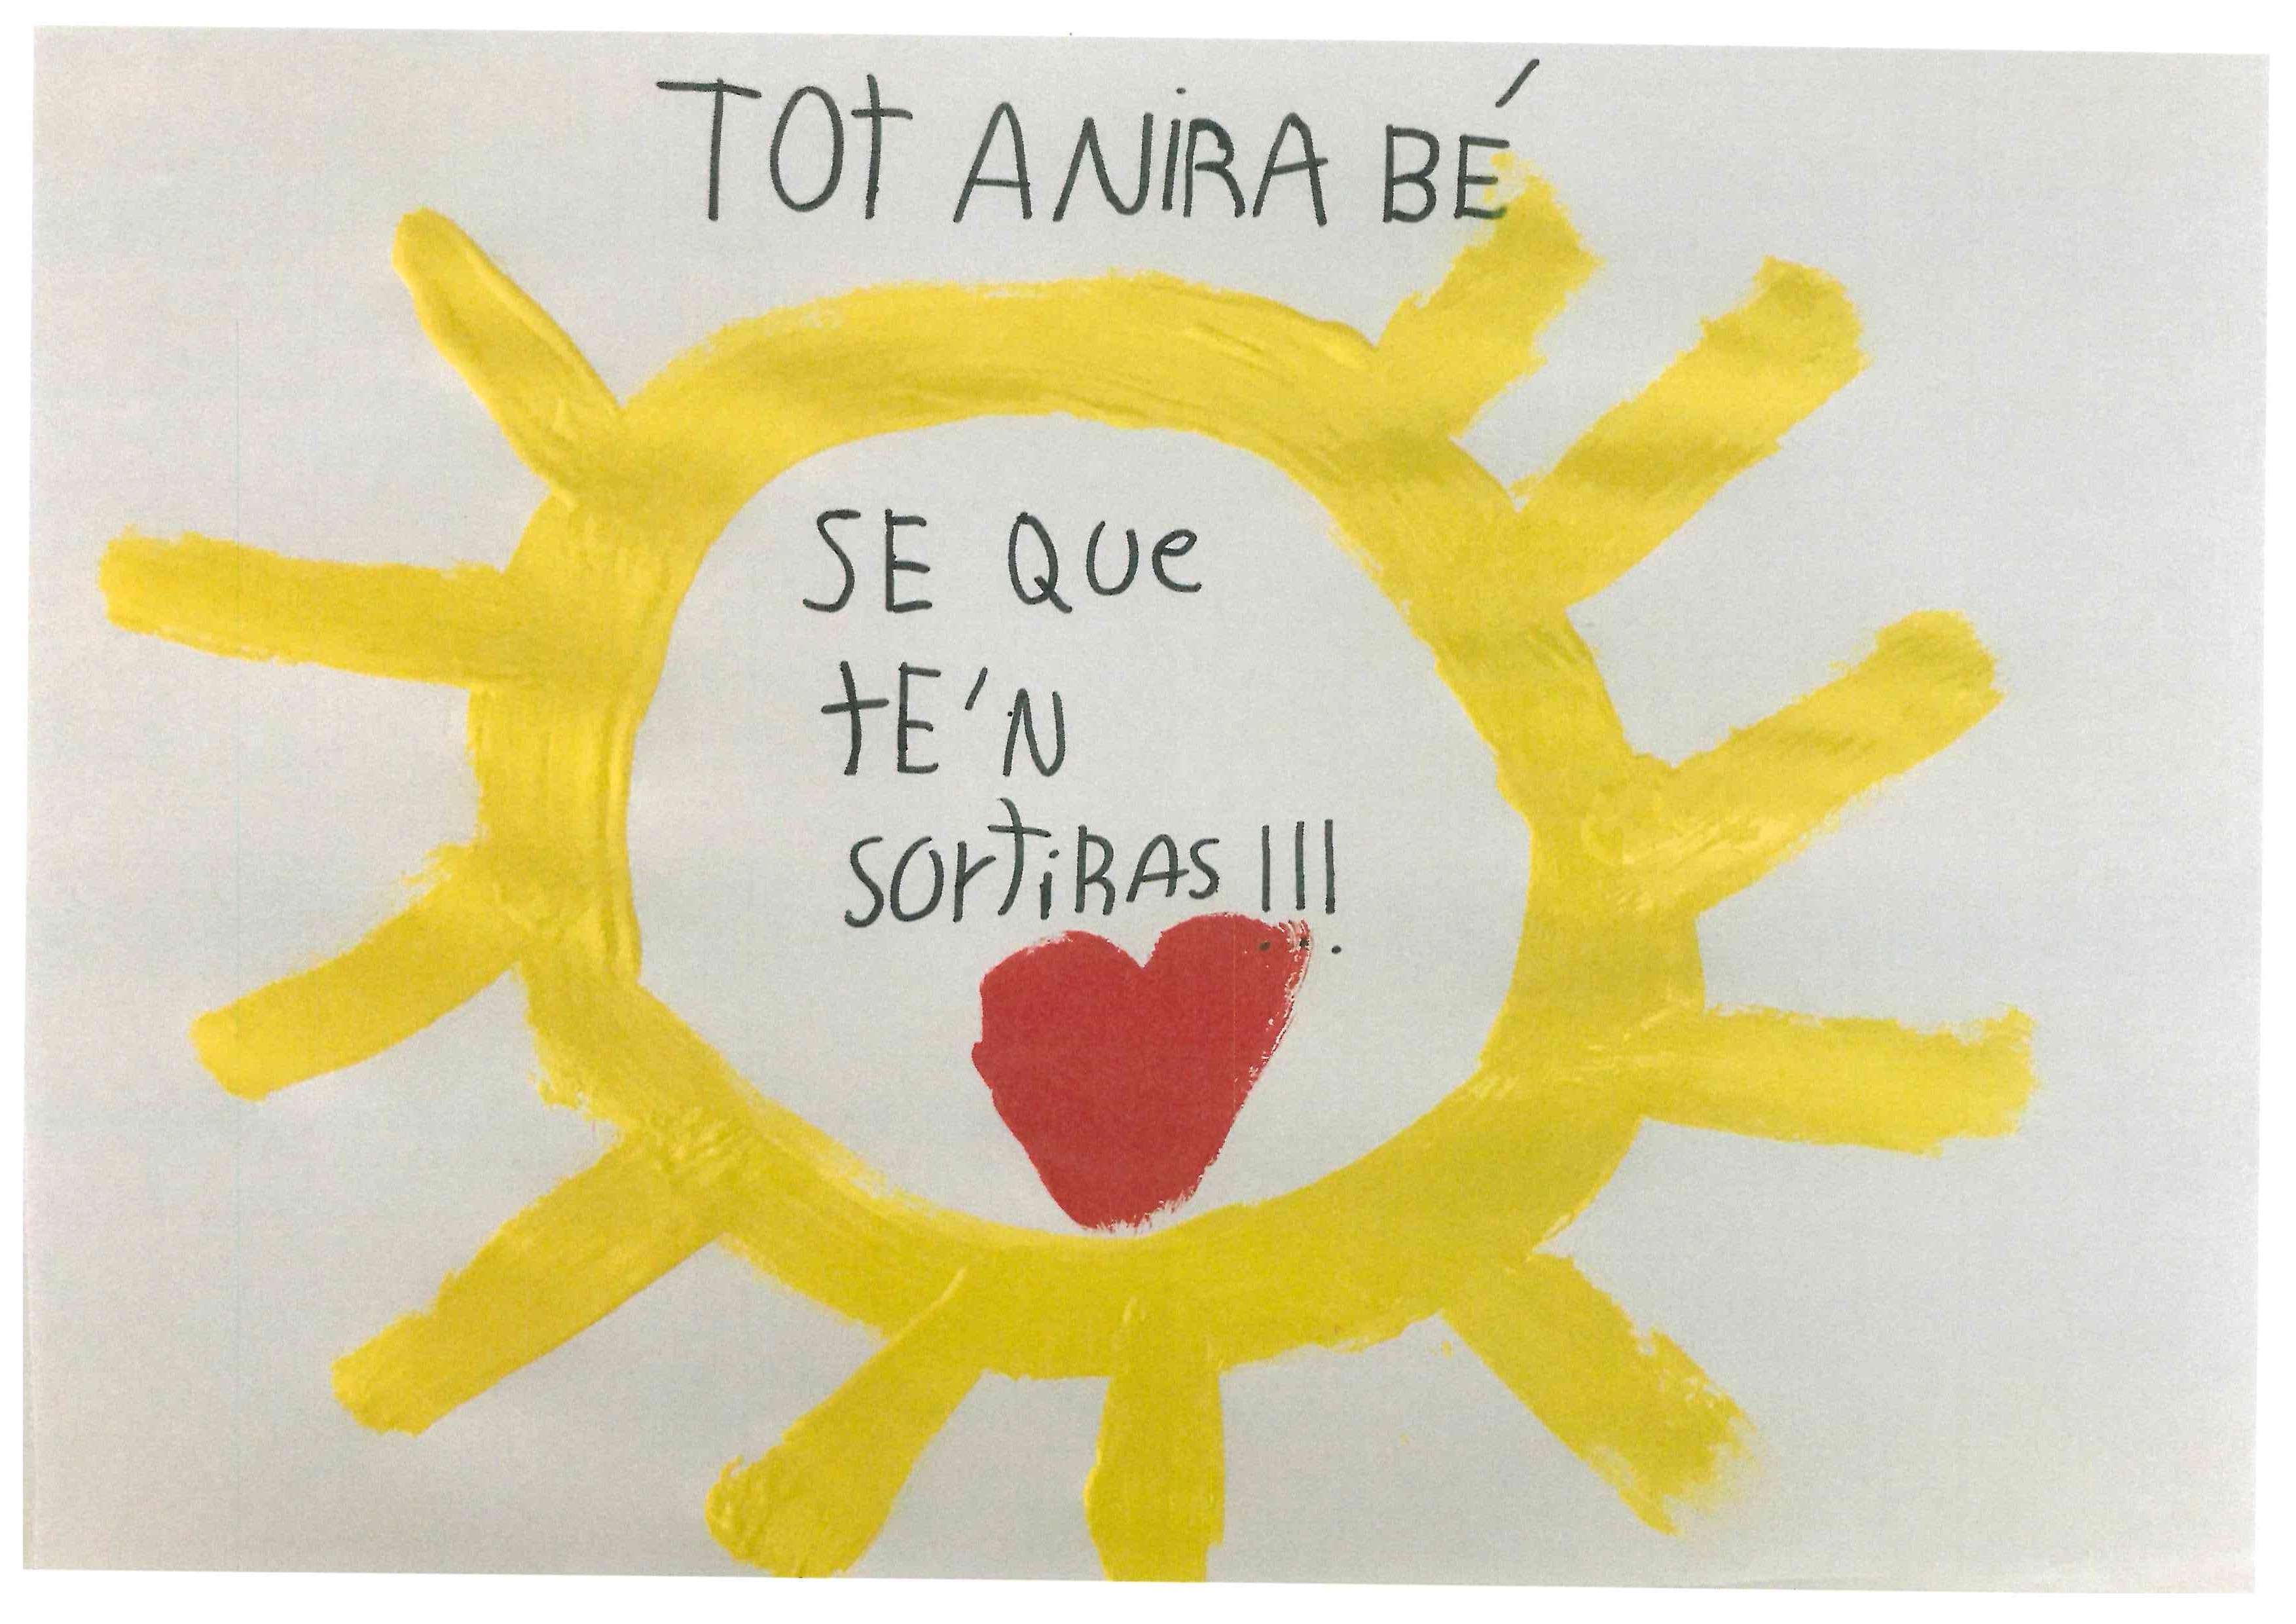 TOt ANIRA BÉ
SE QUe
tE'N
SOrtiRAS!!!